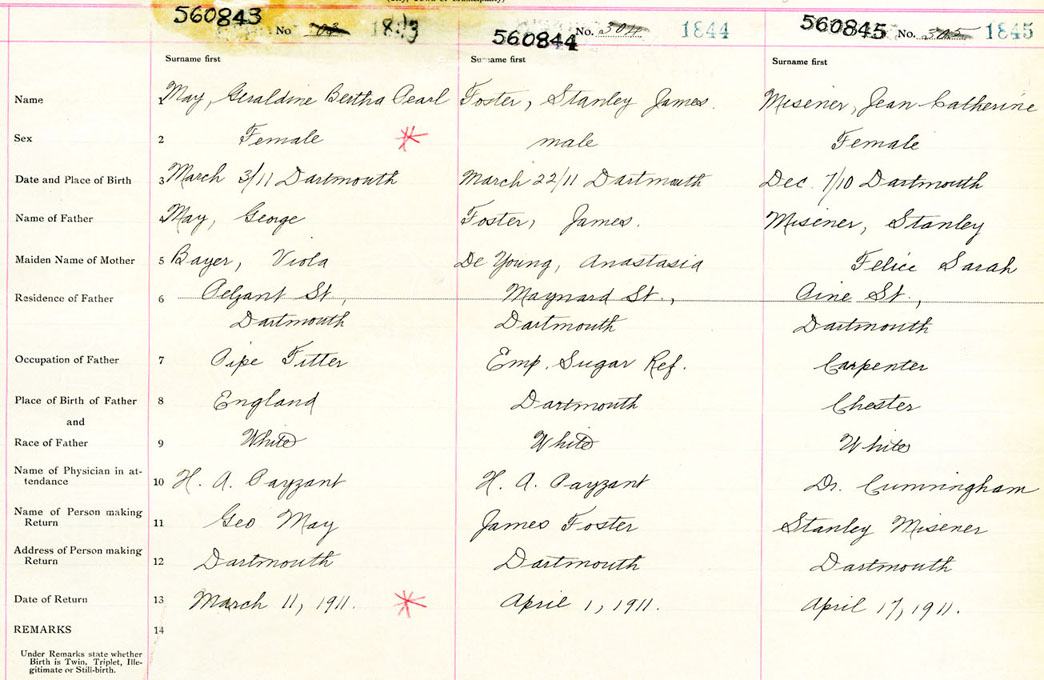 560843 No 1843
560844 No. 304 1844
560845 No. 305 1845
Surname first Surname first Surname first
Name May, Geraldine Bertha Pearl Foster, Stanley James. Misener, Jean Catherine
Sex 2 Female male Female
Date and Place of Birth 3 March 3/11 Dartmouth March 22/11 Dartmouth Dec. 7/10 Dartmouth
Name of Father May, George Foster, James. Misener, Stanley
Maiden Name of Mother 5 Bayer, Viola De Young, Anastasia Felice Sarah
Residence of Father 6 St., Maynard St., Pine St.,
Dartmouth Dartmouth Dartmouth
Occupation of Father 7 Pipe Fitter Emp. Sugar Ref. Carpenter
Place of Birth of Father 8 England Dartmouth Chester
and
Race of Father 9 White White White
Name of Physician in at-
tendance 10 H. A. Payzant H. A. Payzant Dr. Cunningham
Name of Person making
Return 11 Geo May James Foster Stanley Misener
Address of Person making
Return 12 Dartmouth Dartmouth Dartmouth
Date of Return 13 March 11, 1911. April 1, 1911. April 17, 1911.
REMARKS 14
Under Remarks state whether
Birth is Twin, Triplet, Ille-
gitimate or Still-birth.